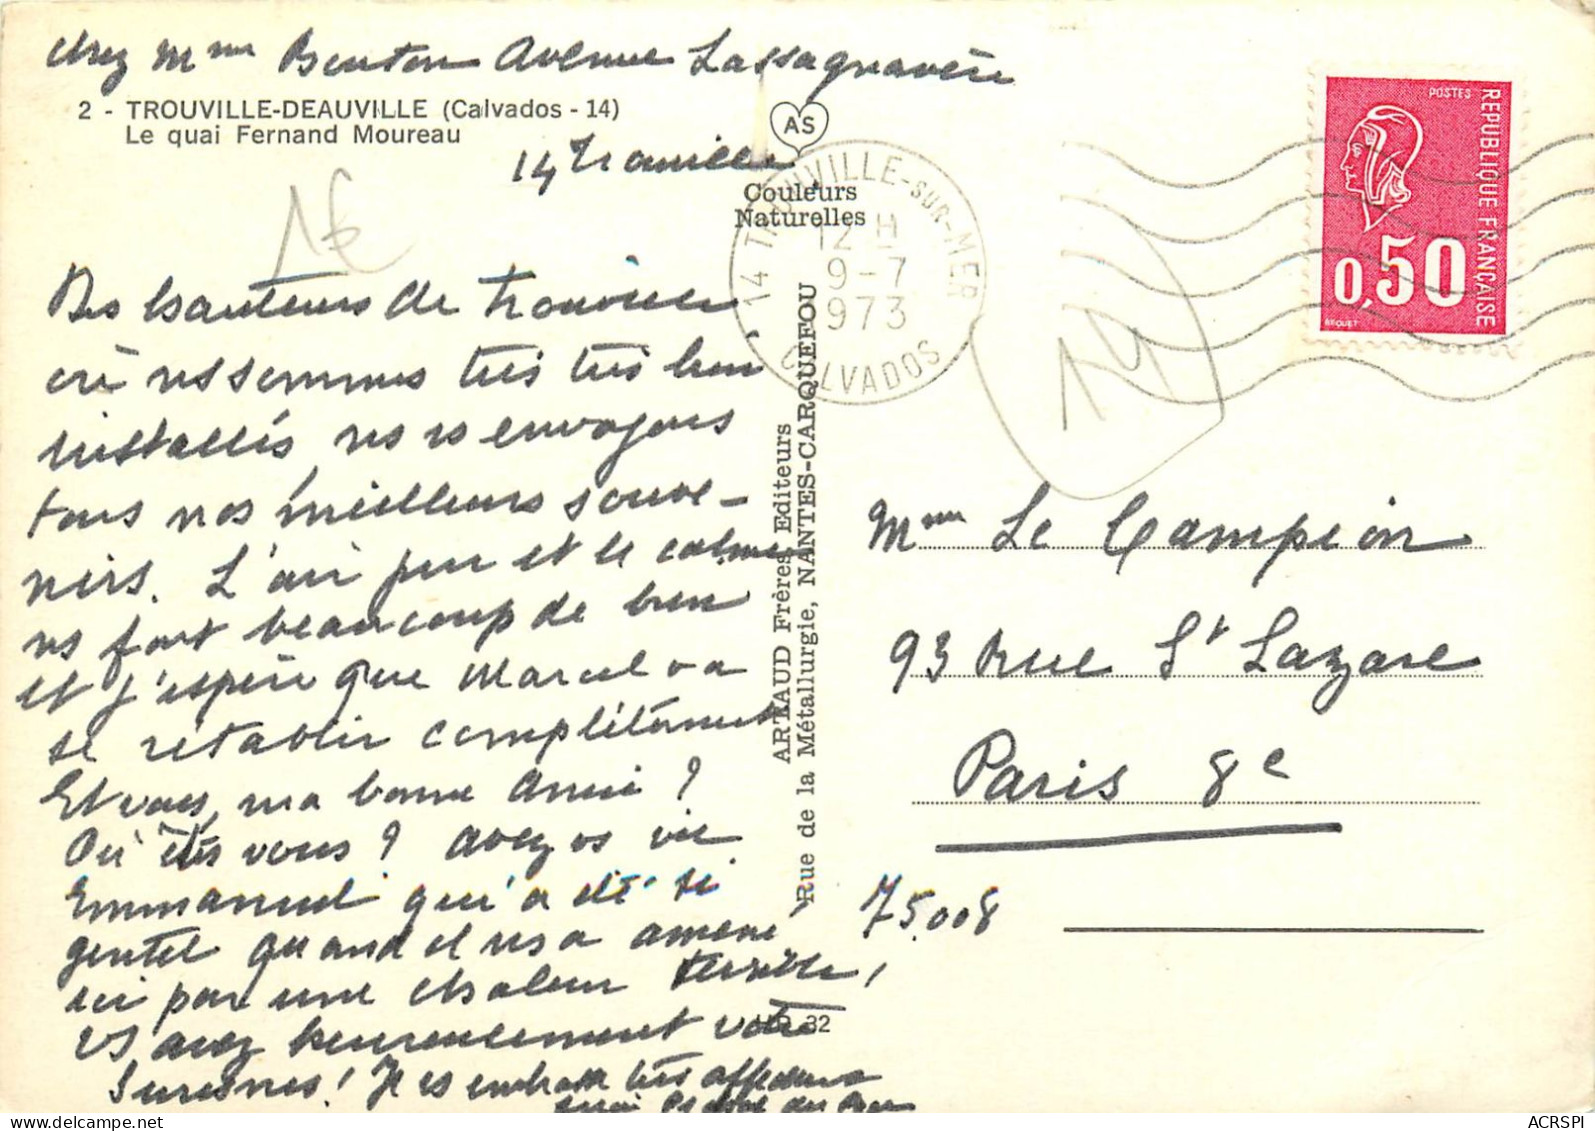 chez Mme Bouton Avenue Lassagnavère
2 - TROUVILLE-DEAUVILLE (Calvados - 14)
Le quai Fernand Moureau
14 Trouville
AS
Couleurs
Naturelles
1€
14 TROUVILLE-SUR-MER
12 H
9-7
973
CALVADOS
POSTES
REPUBLIQUE FRANÇAISE
0,50
BEQUET
14
Des hauteurs de Trouville
où ns sommes très très bien
installés ns vs envoyons
tous nos meilleurs souve-
nirs. L'air pur et le calme
ns font beaucoup de bien
et j'espère que Marcel va
se rétablir complètement
Et vous, ma bonne Amie ?
Où êtes vous ? avez vs vu
Emmanuel qui a été si
gentil quand il ns a amené
ici par une chaleur terrible,
vs avez heureusement votre
Suresnes ! Je vs embrasse très affectueus
ARTAUD Frères Editeurs
Rue de la Métallurgie, NANTES-CARQUEFOU
32
Mme Le Campion
93 rue St Lazare
Paris 8e
75008
ACRSPI